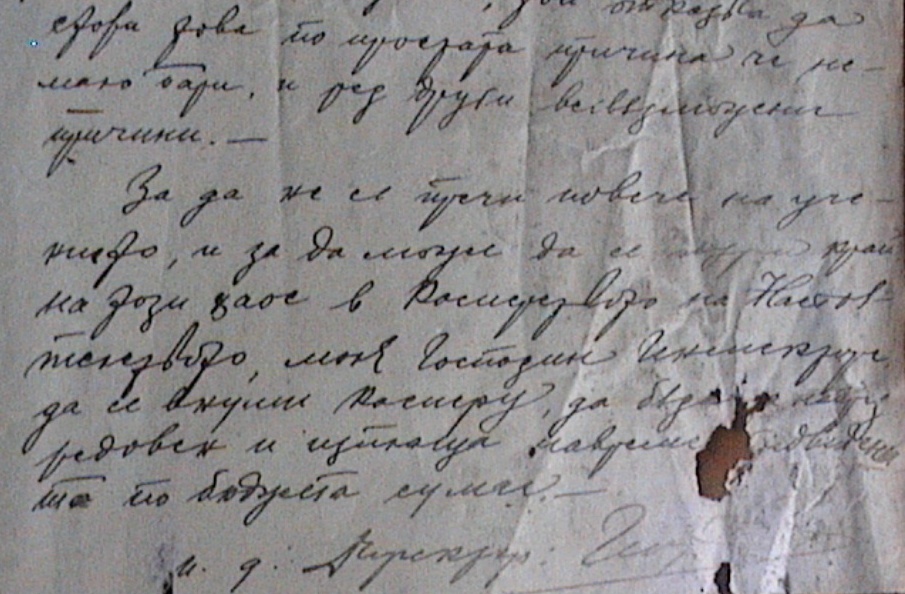 да
стори това по простата причина че ня-
мало пари, и ред други всевъзможни
причини. —
За да не се пречи повече на уче-
нието, и за да може да се край
на този хаос в Касиерството на Настоя-
телството, моля Господин Инспекторе
да се внуши касиеру, да бъде
редовен и изплаща навреме
те по бюджета суми. —
и. д. Директор: